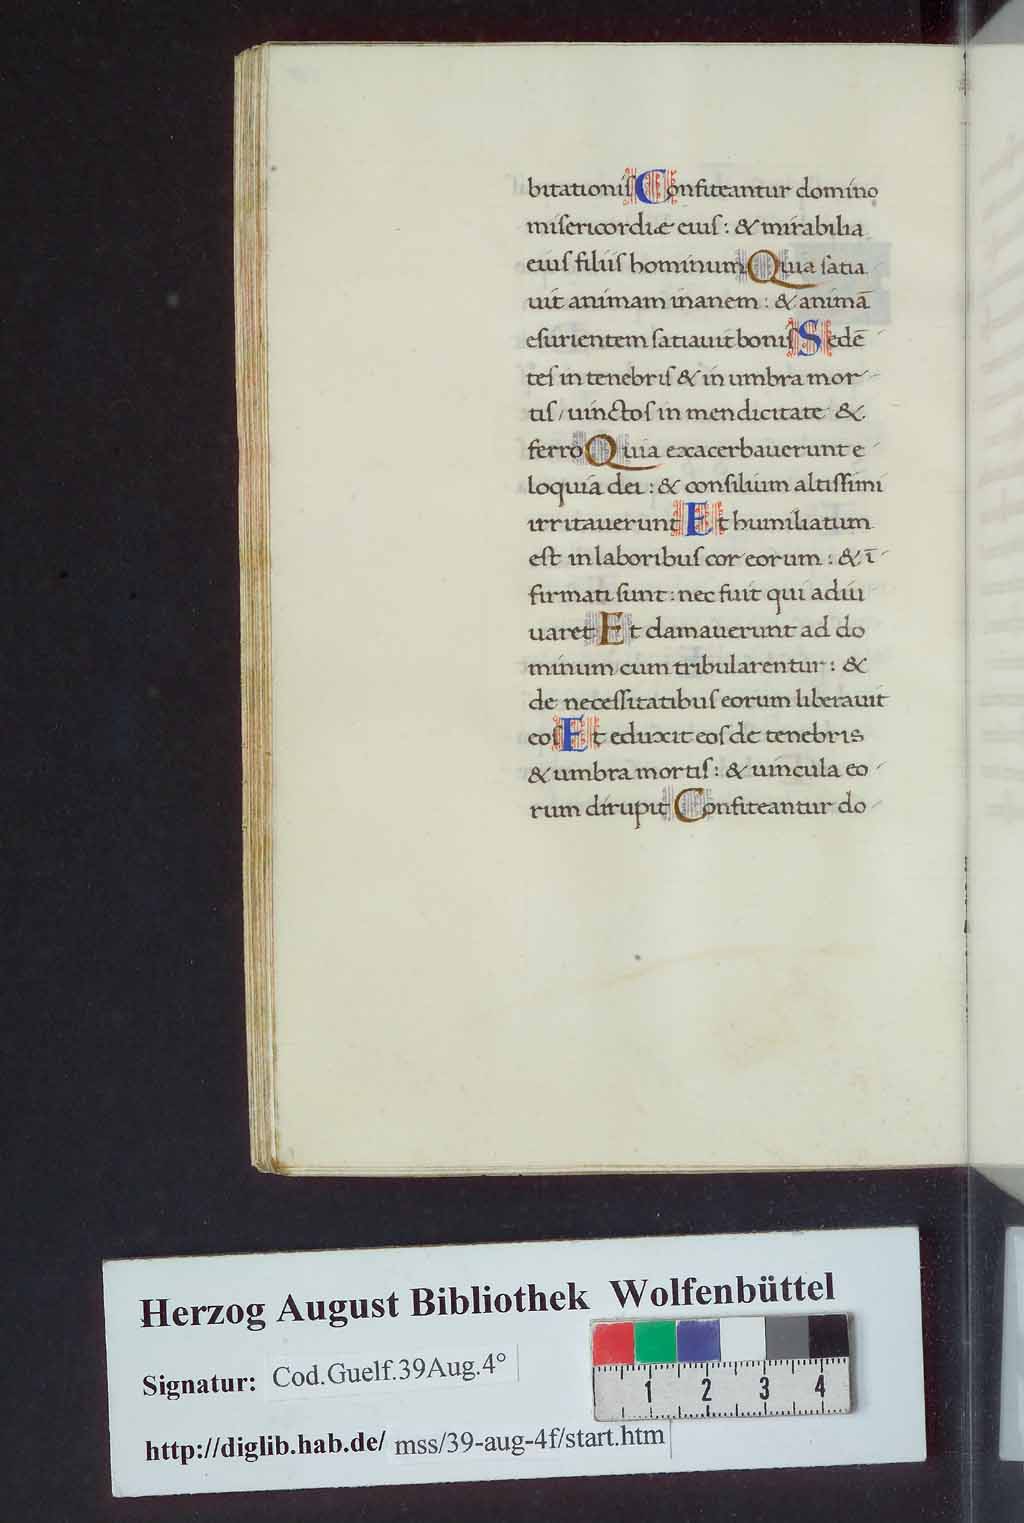 bitationiſ Confiteantur domino
miſericordiæ eiuſ : & mirabilia
eiuſ filiiſ hominum Quia ſatia
uit animam inanem : & animā
eſurientem ſatiauit boniſ Sedē
teſ in tenebriſ & in umbra mor
tiſ / uinctoſ in mendicitate &
ferro Quia exacerbauerunt e
loquia dei : & conſilium altiſſimi
irritauerunt Et humiliatum
eſt in laboribuſ cor eorum : & ī
firmati ſunt : nec fuit qui adiu
uaret Et clamauerunt ad do
minum cum tribularentur : &
de neceſſitatibuſ eorum liberauit
eoſ Et eduxit eoſ de tenebris
& umbra mortiſ : & uincula eo
rum dirupit Confiteantur do
Herzog August Bibliothek Wolfenbüttel
Signatur: Cod.Guelf.39Aug.4°
http://diglib.hab.de/ mss/39-aug-4f/start.htm
1 2 3 4